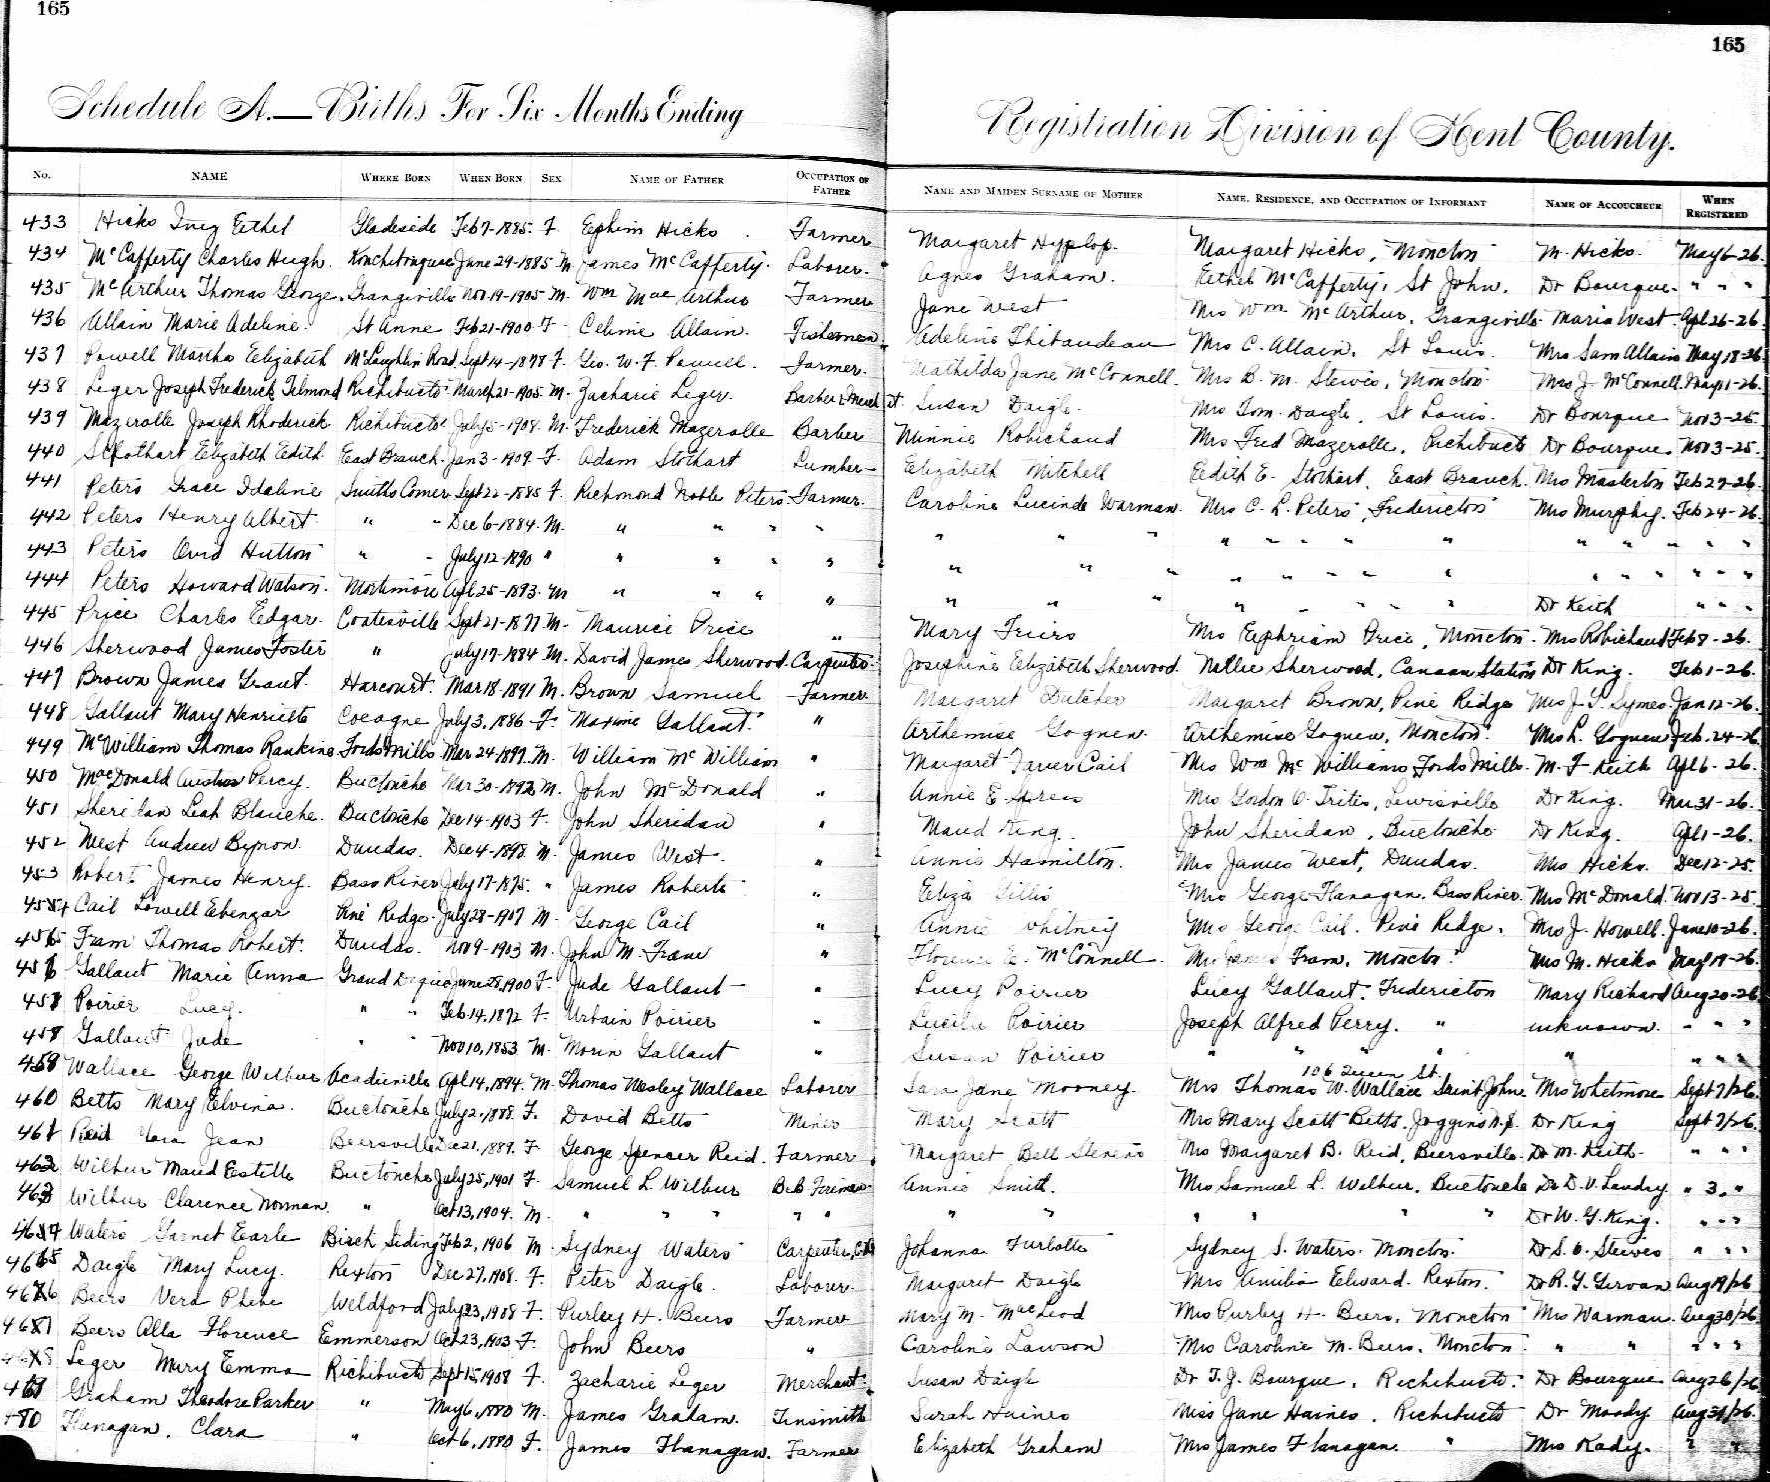 165
165
Schedule A.—Births For Six Months Ending
Registration Division of Kent County.
No. NAME WHERE BORN WHEN BORN SEX NAME OF FATHER OCCUPATION OF FATHER NAME AND MAIDEN SURNAME OF MOTHER NAME, RESIDENCE, AND OCCUPATION OF INFORMANT NAME OF ACCOUCHEUR WHEN REGISTERED
433 Hicks Ethel Gladeside Feb 7-1885. F. Ephim Hicks Farmer Margaret Hyslop. Margaret Hicks, Moncton M. Hicks. May 6-26.
434 McCafferty Charles Hugh. June 29-1885 M James McCafferty. Laborer. Agnes Graham. Ethel McCafferty, St John. Dr Bourque. " " "
435 McArthur Thomas George. Grangeville Nov 19-1905 M. Wm Mac Arthur Farmer Jane West Mrs Wm McArthur, Grangeville Maria West Apl 26-26.
436 Allain Marie Adeline. St Anne Feb 21-1900 F. Celime Allain. Fisherman Adeline Thibaudeau Mrs C. Allain, St Louis. Mrs Sam Allain May 18-26
437 Powell Martha Elizabeth McLaughlin Road Sept 14-1878 F. Geo. W. F. Powell. Farmer. Mathilda Jane McConnell. Mrs B. M. Steves, Moncton Mrs J. McConnell May 11-26.
438 Leger Joseph Frederick Telmond Richibucto March 21-1905 M. Zacharie Leger. Barber & Merch't. Susan Daigle. Mrs Tom. Daigle, St Louis. Dr Bourque Nov 3-25.
439 Mazerolle Joseph Rhoderick Richibucto July 5-1908. M. Frederick Mazerolle Barber Minnie Robichaud Mrs Fred Mazerolle, Richibucto Dr Bourque. Nov 3-25.
440 Stothart Elizabeth Edith East Branch. Jan 3-1909. F. Adam Stothart Lumber- Elizabeth Mitchell Edith E. Stothart, East Branch. Mrs Masterton Feb 27-26.
441 Peters Grace Idaline Smiths Corner Sept 22-1885 F. Richmond Noble Peters Farmer. Caroline Lucinda Warman. Mrs C. L. Peters, Fredericton Mrs Murphy. Feb 24-26.
442 Peters Henry Albert " " Dec 6-1884. M. " " " " " " " " " " " " " " " " " "
443 Peters Ovid Hutton " " July 12-1890 " " " " " " " " " " " " " " " " " " "
444 Peters Howard Watson. Mortimore Apl 25-1893. M " " " " " " " " " " " " Dr Keith " " "
445 Price Charles Edgar. Coatesville Sept 21-1877 M. Maurice Price " Mary Friers Mrs Ephriam Price, Moncton. Mrs Robichaud Feb 8-26.
446 Sherwood James Foster " July 17-1884 M. David James Sherwood. Carpenter. Josephine Elizabeth Sherwood. Nellie Sherwood, Canaan Station Dr King. Feb 1-26.
447 Brown James Grant. Harcourt. Mar 18-1891 M. Brown Samuel Farmer Margaret Dutcher Margaret Brown, Pine Ridge Mrs J. T. Symes. Jan 12-26.
448 Gallant Mary Henriette Cocagne July 3, 1886 F. Maxime Gallant. " Arthemise Goguen. Arthemise Goguen, Moncton. Mrs L. Goguen Feb. 24-26
449 McWilliam Thomas Rankine Fords Mills Mar 24-1897. M. William McWilliam " Margaret Cail Mrs Wm McWilliams Fords Mills. M. F. Keith Apl 6-26.
450 MacDonald Percy. Buctouche Mar 30-1892 M. John McDonald " Annie E. Mrs Gordon O. Trites, Lewisville Dr King. Mar 31-26.
451 Sheridan Leah Blanche. Buctouche Dec 14-1903 F. John Sheridan " Maud King. John Sheridan, Buctouche Dr King. Apl 1-26.
452 West Andrew Byron. Dundas. Dec 4-1898 M. James West. " Annie Hamilton. Mrs James West, Dundas. Mrs Hicks. Dec 12-25.
453 Robert James Henry. Bass River July 17-1875. " James Roberts " Eliza Gillis Mrs George Flanagan. Bass River. Mrs McDonald. Nov 13-25.
454 Cail Lowell Ebenzar Pine Ridge. July 28-1907 M. George Cail " Annie Whitney Mrs George Cail. Pine Ridge. Mrs J. Howell. June 10-26.
455 Fram Thomas Robert. Dundas. Nov 9-1903 M. John M. Fram " Florence E. McConnell. Mrs James Fram. Moncton. Mrs M. Hicks May 19-26.
456 Gallant Marie Anna Grand Digue June 28, 1900 F. Jude Gallant " Lucy Poirier Lucy Gallant. Fredericton Mary Richard Aug 20-26.
457 Poirier Lucy. " " Feb 14, 1872 F. Urbain Poirier " Lucille Poirier Joseph Alfred Perry. " unknown. " " "
458 Gallant Jude " " Nov 10, 1853 M. Morin Gallant " Susan Poirier " " " " " " " "
459 Wallace George Wilbur Acadieville Apl 14, 1894. M. Thomas Wesley Wallace Laborer Sara Jane Mooney. Mrs Thomas W. Wallace 106 Queen St. Saint John Mrs Whetmore Sept 7/26.
460 Betts Mary Elvina. Buctouche July 2, 1888. F. David Betts Miner Mary Scott Mrs Mary Scott Betts. Joggins N.S. Dr King Sept 7/26.
461 Reid Jean Beersville Dec 21, 1889. F. George Spencer Reid. Farmer Margaret Bell Stevens Mrs Margaret B. Reid, Beersville. Dr M. Keith. " " "
462 Wilbur Maud Estella Buctouche July 25, 1901 F. Samuel L. Wilbur Annie Smith. Mrs Samuel L. Wilbur, Buctouche Dr D. V. Landry " 3. "
463 Wilbur Clarence Norman. " Oct 13, 1904. M. " " " " " " " " " " " Dr W. G. King. " " "
464 Waters Garnet Earle Birch Siding Feb 2, 1906 M. Sydney Waters Carpenter, Johanna Furlotte Sydney S. Waters. Moncton. Dr S. C. Steeves " " "
465 Daigle Mary Lucy. Rexton Dec 27, 1908. F. Peter Daigle. Laborer. Margaret Daigle Mrs Amilia Edward. Rexton. Dr R. G. Girvan Aug 19/26
466 Beers Vera Phebe Weldford July 23, 1908 F. Purley H. Beers Farmer Mary M. MacLeod Mrs Purley H. Beers, Moncton Mrs Warman. Aug 30/26.
467 Beers Alla Florence Emmerson Oct 23, 1903 F. John Beers " Caroline Lawson Mrs Caroline M. Beers. Moncton. " " " " "
468 Leger Mary Emma Richibucto Sept 15, 1908 F. Zacharie Leger Merchant. Susan Daigle Dr T. J. Bourque, Richibucto. Dr Bourque Aug 26/26
469 Graham Theodore Parker " May 6, 1880 M. James Graham. Tinsmith Sarah Haines Miss Jane Haines, Richibucto Dr Moody Aug 31/26.
470 Flanagan, Clara " Oct 6, 1880 F. James Flanagan. Farmer Elizabeth Graham Mrs James Flanagan. " Mrs Kady. " "